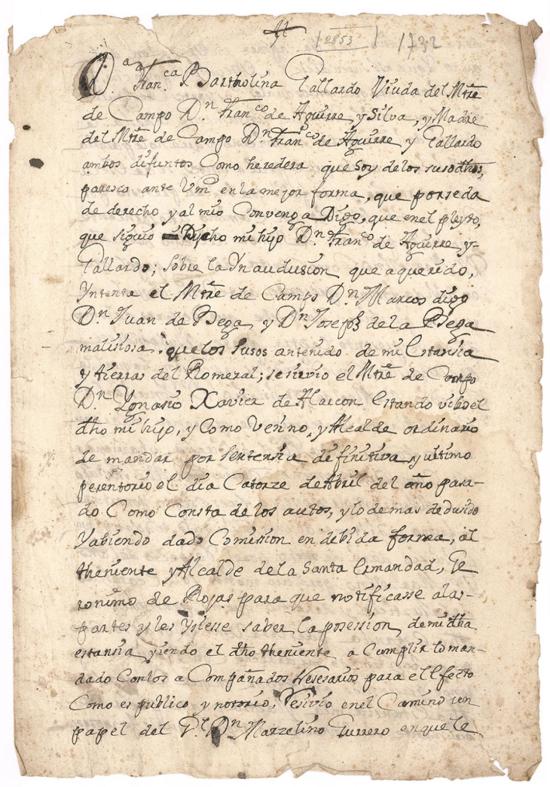 2853 1732
D.a Fran.ca Bartholina Gallardo Viuda del Mtre
de Campo D.n Fran.co de Aguirre y Silva, y Madre
del Mtre de Campo D.n Fran.co de Aguirre y Gallardo
ambos difuntos Como heredera que soy de los susodhos,
paresco ante Vm.d en la mejor forma, que por seda
de derecho y al mio Convenga Digo, que en el pleyto,
que siguio Dicho mi hijo D.n Fran.co de Aguirre y
Gallardo; sobre la que a querido,
Yntenta el Mtre de Campo D.n Marcos digo
D.n Juan de Bega y D.n Joseph de la Bega
que los susos antenido de mi Estansia
y tierras del Romeral; se sirvio el Mtre de Campo
D.n Ygnasio Xavier de Alarcon Estando vibo el
dho mi hijo, y Como Vesino, y Alcalde ordinario
de mandar por sentensia difinitiva y ultimo
perentorio el dia Catorze de Abril del año pasa-
do Como Consta de los autos, y lo de mas dedusido
Yabiendo dado Comision en debida forma, al
theniente y Alcalde de la Santa Ermandad, Ge
ronimo de Rojas para que notificasse a las
partes y les Ysiesse saber la posession, de mi dha
estansia yiendo el dho theniente a Cumplir lo man-
dado Con los a Compañados Nesesarios para el Efecto
Como es publico y notorio, resivio en el Camino un
papel del D.n Marzelino Guerrero en que le